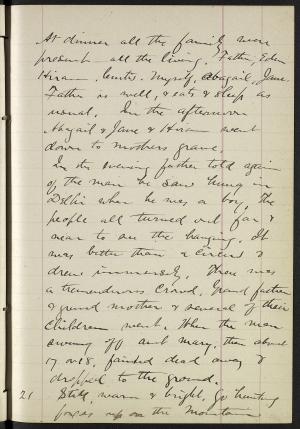 At dinner all the family were
present - all the living. Father, Eden
Hiram, Curtis, Myself, Abagail, Jane.
Father is well, & eats & sleep as
usual. In the afternoon
Abigail & Jane & Hiram went
down to mothers grave.
In the evening father told again
of the man he saw hung in
Delhi when he was a boy. The
people all turned out far &
near to see the hanging. It
was better than a circus &
drew immensely. There was
a tremendous crowd. Grand father
& grand mother & several of their
Children went. When the man
swung off aunt Mary, then about
17 or 18, fainted dead away &
dropped to the ground.
21 Still, warm & bright. Go hunting
foxes up on the Mountain